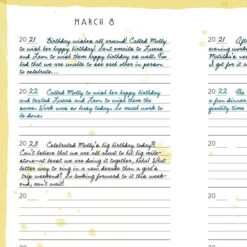 MARCH 8
20 21 Birthday wishes all around! Called Molly
to wish her happy birthday! Sent emails to
and Pam to wish them happy birthday as well. Too
bad that we are unable to see each other in person
to celebrate...
20 22 Called Molly to wish her happy birthday
and texted and Pam to wish them the
same. Work was so busy today. So much work to
be done.
20 23 Celebrated Molly's big birthday today!!
Can't believe that we are about to hit big mile-
stone-at least we are doing it together, haha! What
better way to ring in a new decade than a girl's
trip weekend? So looking forward to it this week-
end, can't wait!
20
20
20 21
evening
20 22
a fun dinner
20
20
20